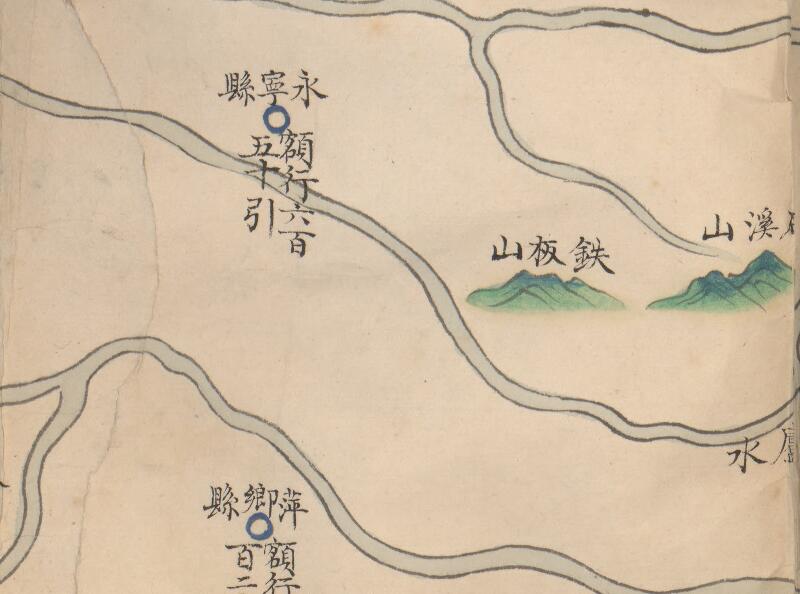 永寧縣
額行六百
五十引
鉄板山
溪山
水
萍鄉縣
額行
百二